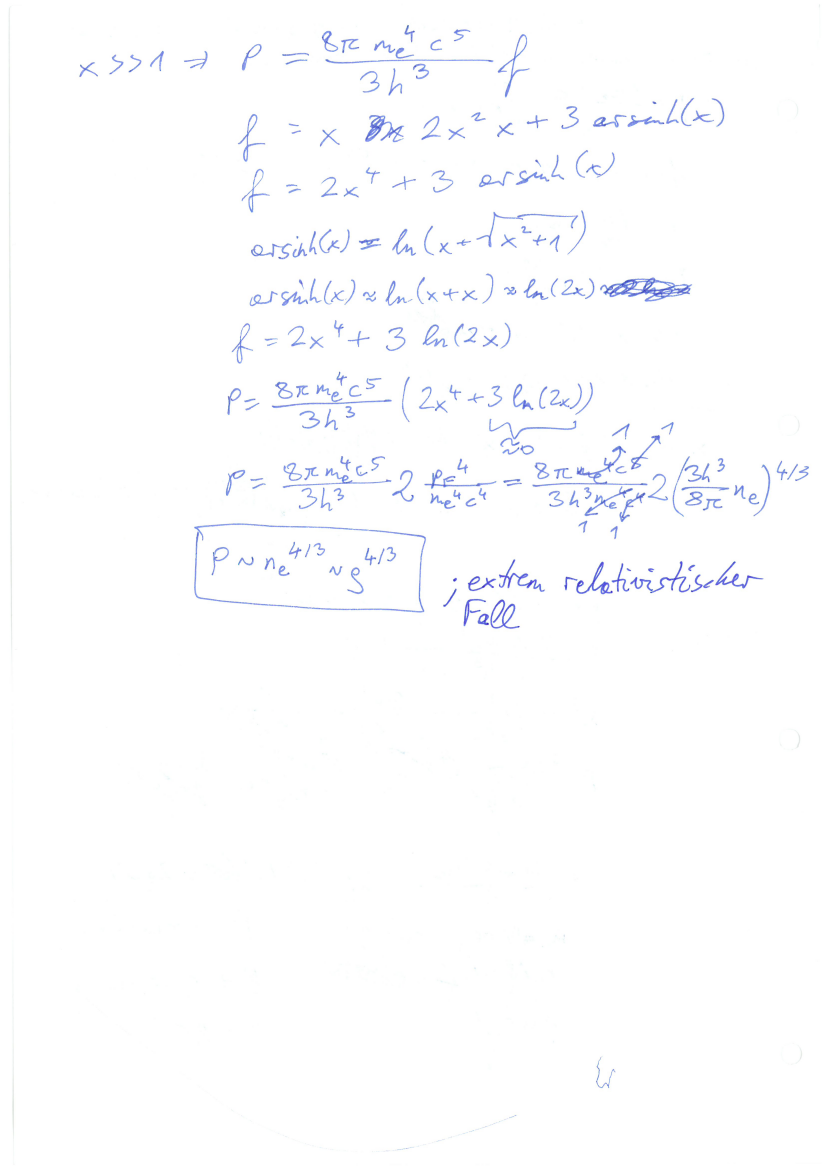 x >> 1 ⇒ P = 8π mₑ⁴ c⁵ / 3h³ f
f = x 2x² x + 3 arsinh(x)
f = 2x⁴ + 3 arsinh(x)
arsinh(x) = ln(x + √(x²+1))
arsinh(x) ≈ ln(x+x) ≈ ln(2x)
f = 2x⁴ + 3 ln(2x)
P = 8π mₑ⁴ c⁵ / 3h³ (2x⁴ + 3 ln(2x))
≈0 1 1
P = 8π mₑ⁴ c⁵ / 3h³ 2 p_F⁴ / mₑ⁴ c⁴ = 8π mₑ⁴ c⁵ / 3h³ mₑ⁴ c⁴ 2 (3h³ / 8π nₑ)^4/3
1 1
P ~ nₑ^4/3 ~ ρ^4/3 ; extrem relativistischer
Fall